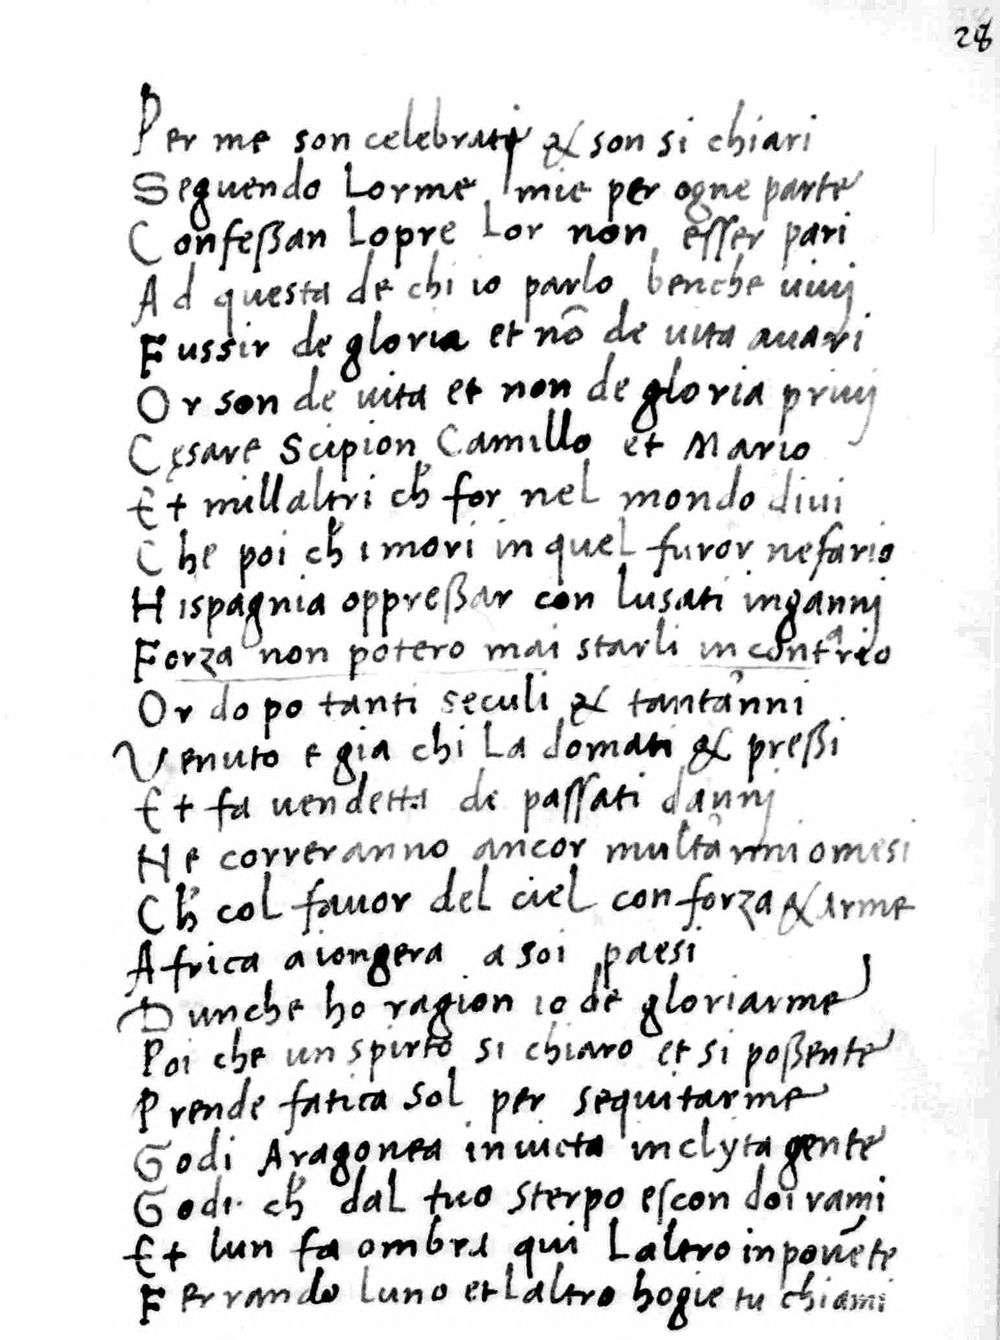 28
Per me son celebrati & son si chiari
Seguendo Lorme mie per ogne parte
Confeßan Lopre Lor non esser pari
Ad questa de chi io parlo benche uiuj
Fussir de gloria et nō de uita auari
Or son de uita et non de gloria priuj
Cęsare Scipion Camillo et Mario
Et millaltri ch̄ for nel mondo diui
Che poi ch̄ i mori in quel furor nefario
Hispagnia oppreßar con lusati ingannj
Forza non potero mai starli incontrario
Or dopo tanti seculi & tantanni
Venuto e gia chi La domati & preßi
Et fa uendetta di passati dannj
He correranno ancor multanni o mesi
Ch̄ col fauor del ciel con forza & arme
Africa aiongera a soi paesi
Dunche ho ragion io de gloriarme
Poi che un spirto si chiaro et si poßente
Prende fatica sol per sequitarme
Godi Aragonea inuicta inclyta gente
Godi. ch̄ dal tuo sterpo escon doi rami
Et lun fa ombra qui Laltro in ponēte
Ferrando luno et Laltro hogie tu chiami